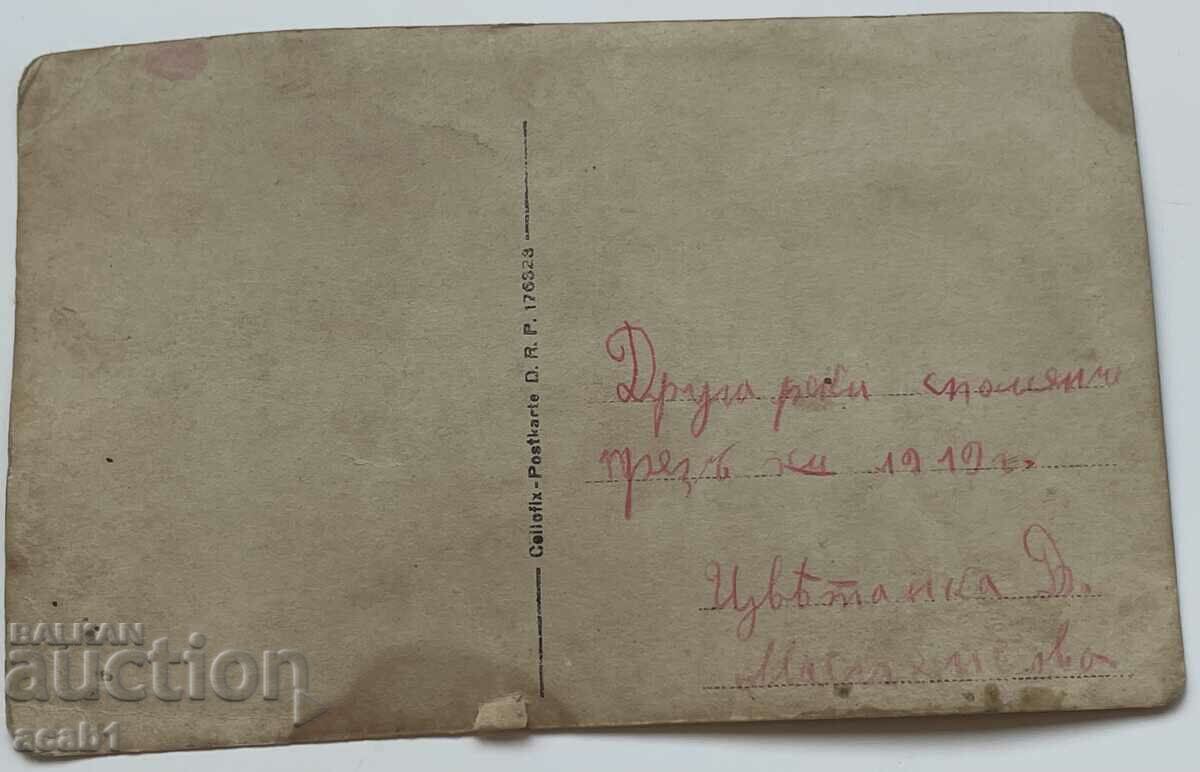 Cellofix-Postkarte D. R. P. 176323
Другарски спомянъ
презъ 1919 г.
Цвѣтанка Д.
BALKAN
auction
acab1